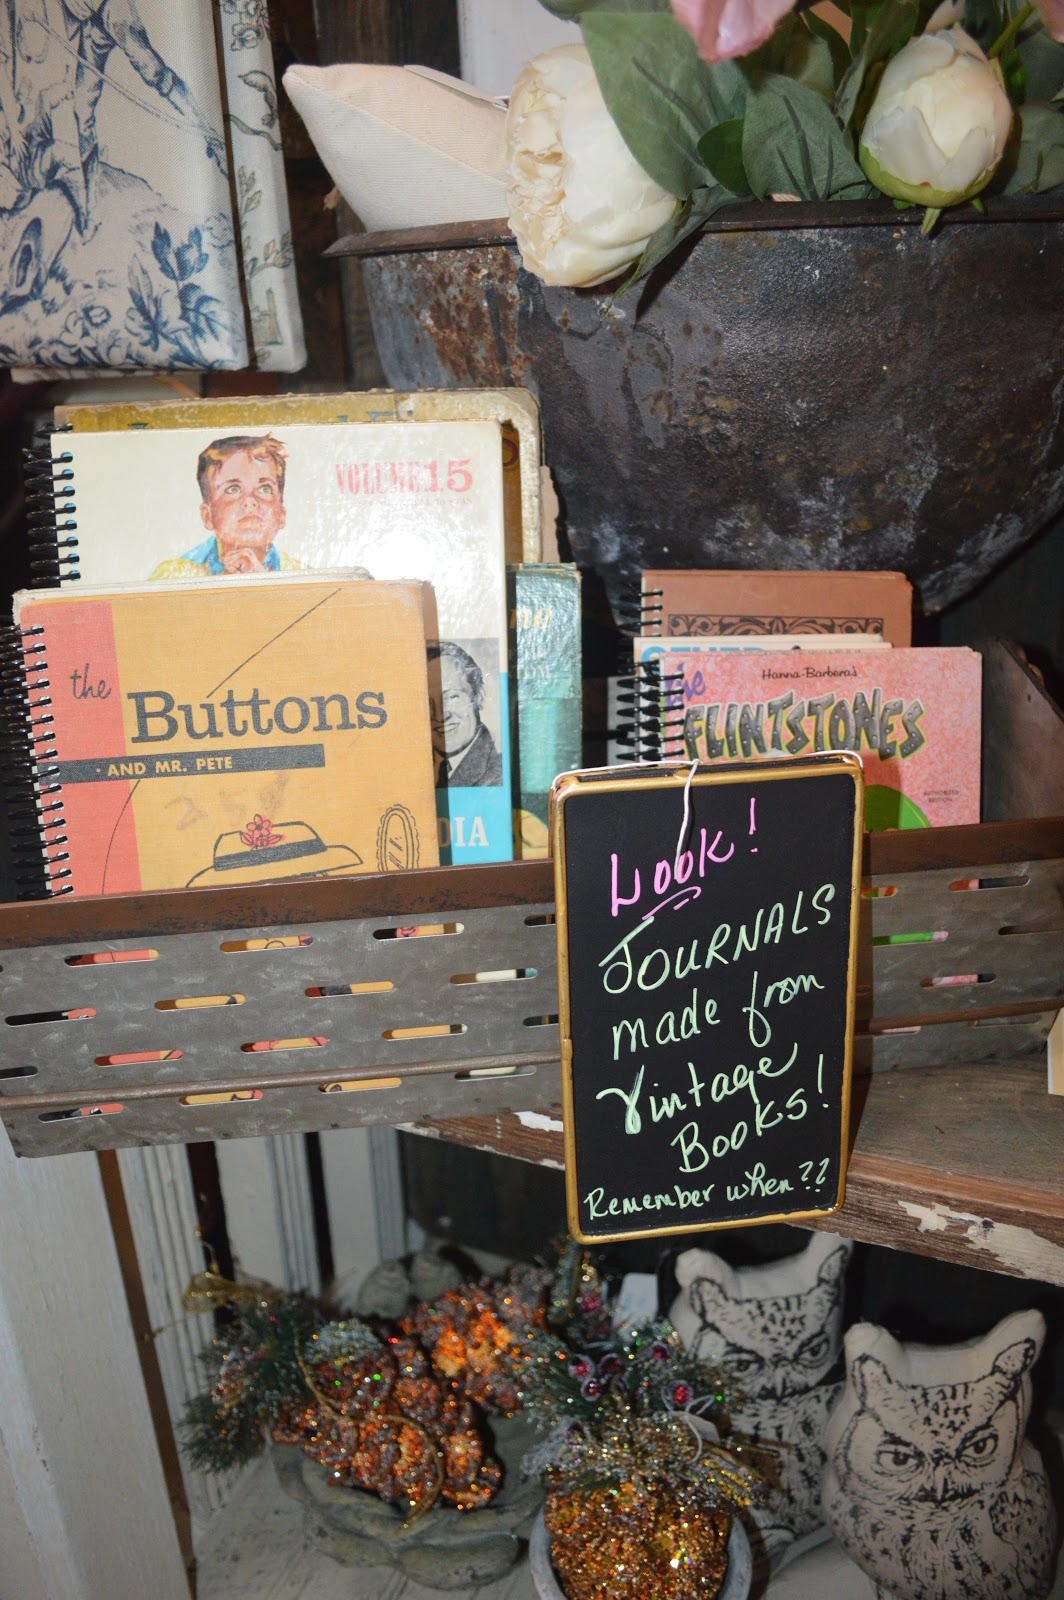 VOLUME 15
the
Buttons
· AND MR. PETE
DIA
Hanna-Barbera's
the
FLINTSTONES
AUTHORIZED
EDITION
Look!
JOURNALS
made from
Vintage
Books!
Remember when??